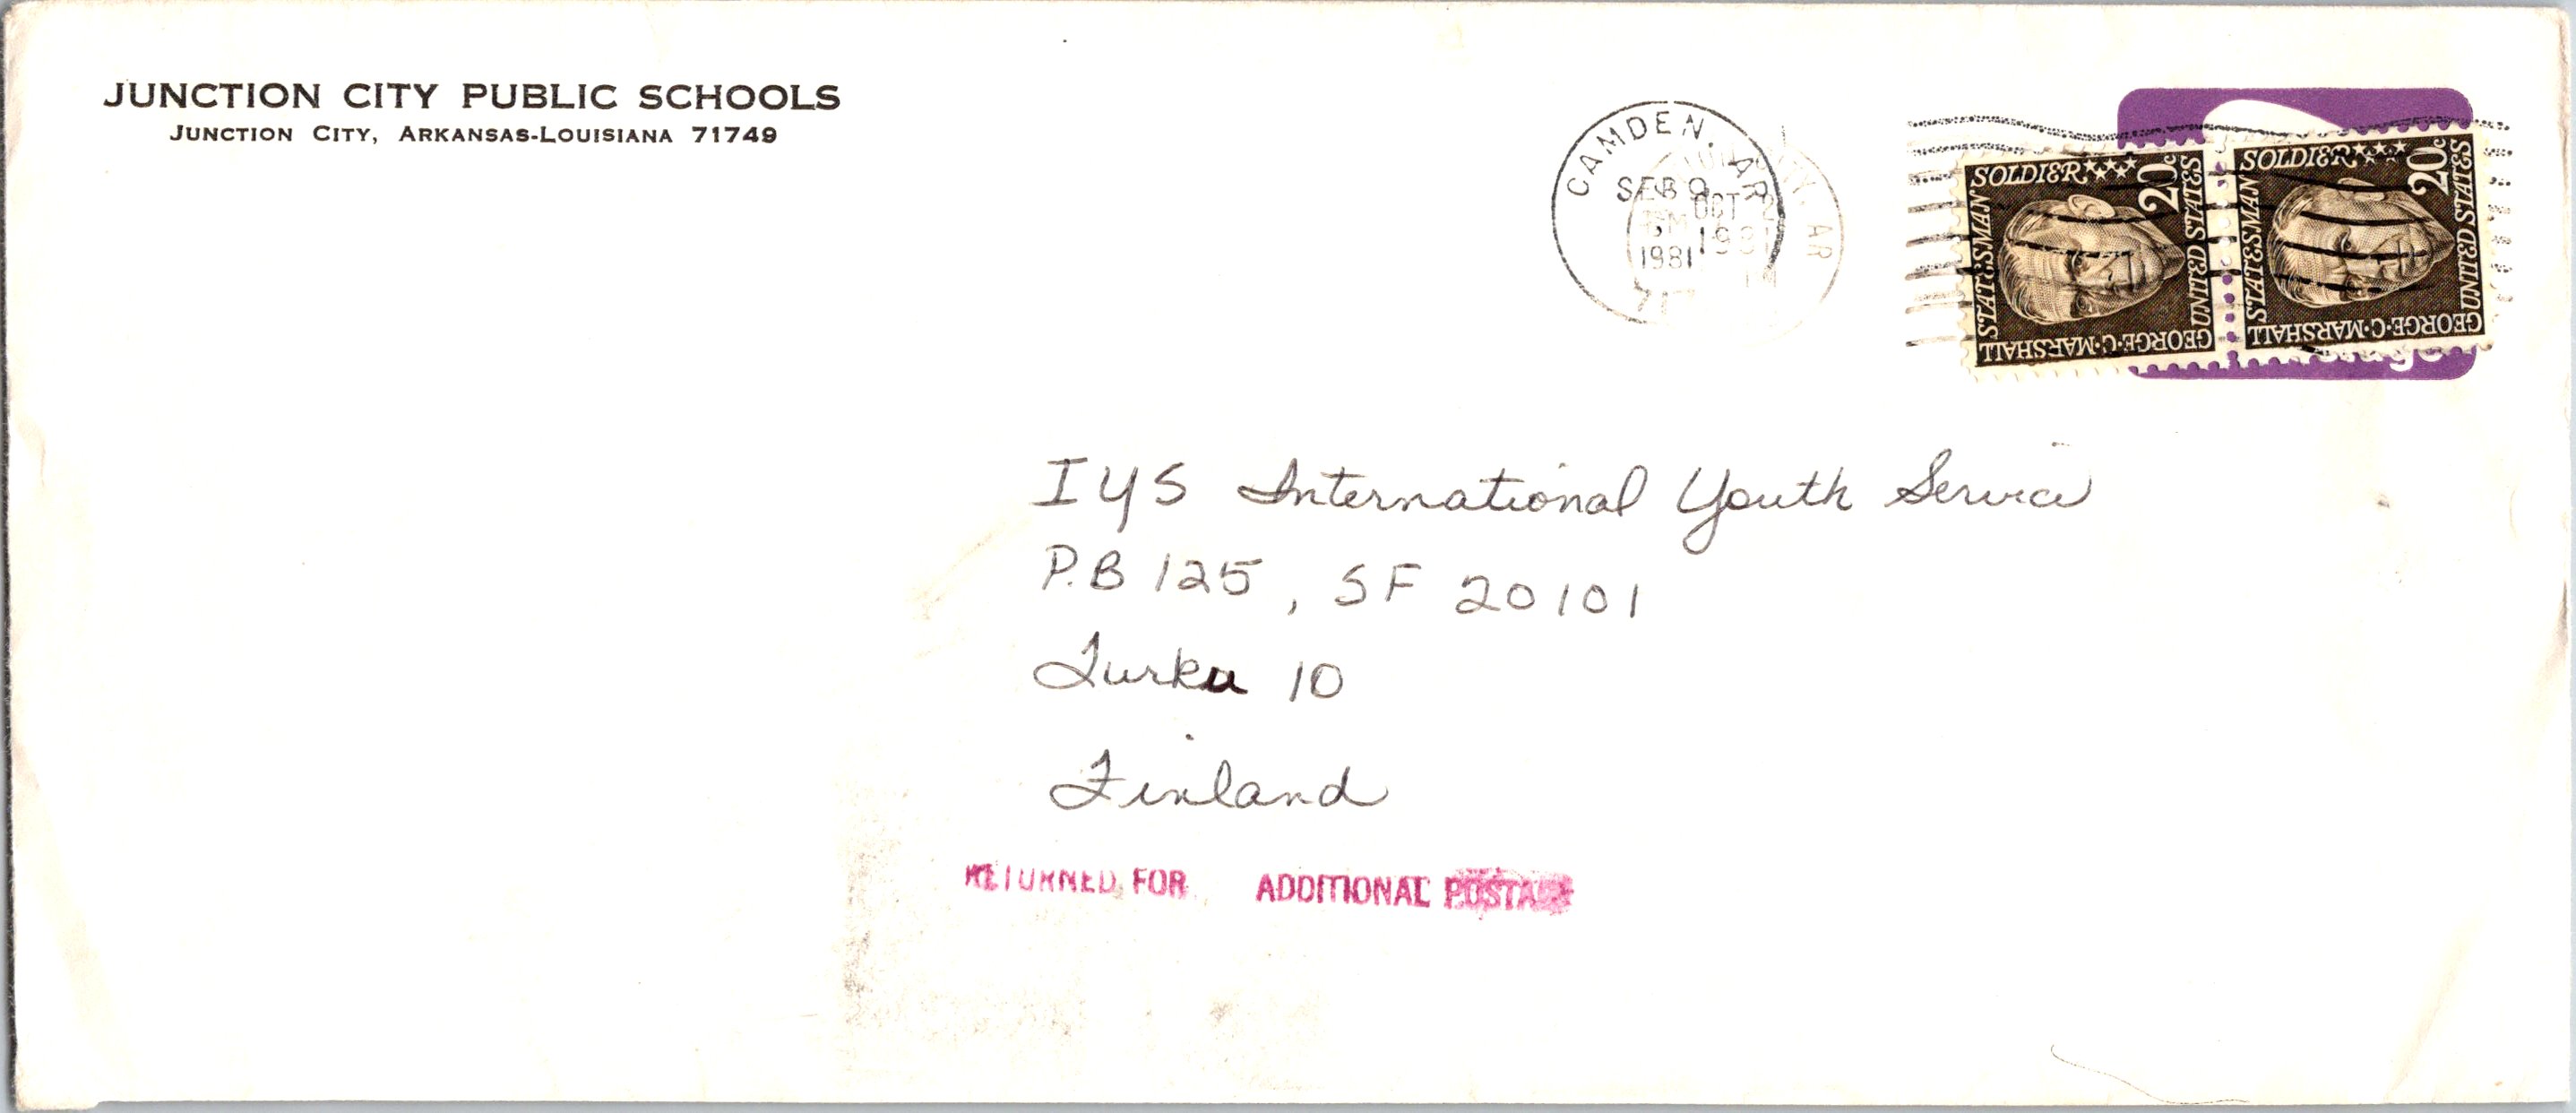 JUNCTION CITY PUBLIC SCHOOLS
JUNCTION CITY, ARKANSAS-LOUISIANA 71749
CAMDEN, AR
OCT 2
1981
1981
AR
SOLDIER
20c
UNITED STATES
GEORGE·C·MARSHALL
STATESMAN
SOLDIER
20c
UNITED STATES
GEORGE·C·MARSHALL
STATESMAN
IYS International Youth Service
P.B 125, SF 20101
Turku 10
Finland
RETURNED FOR ADDITIONAL POSTAGE